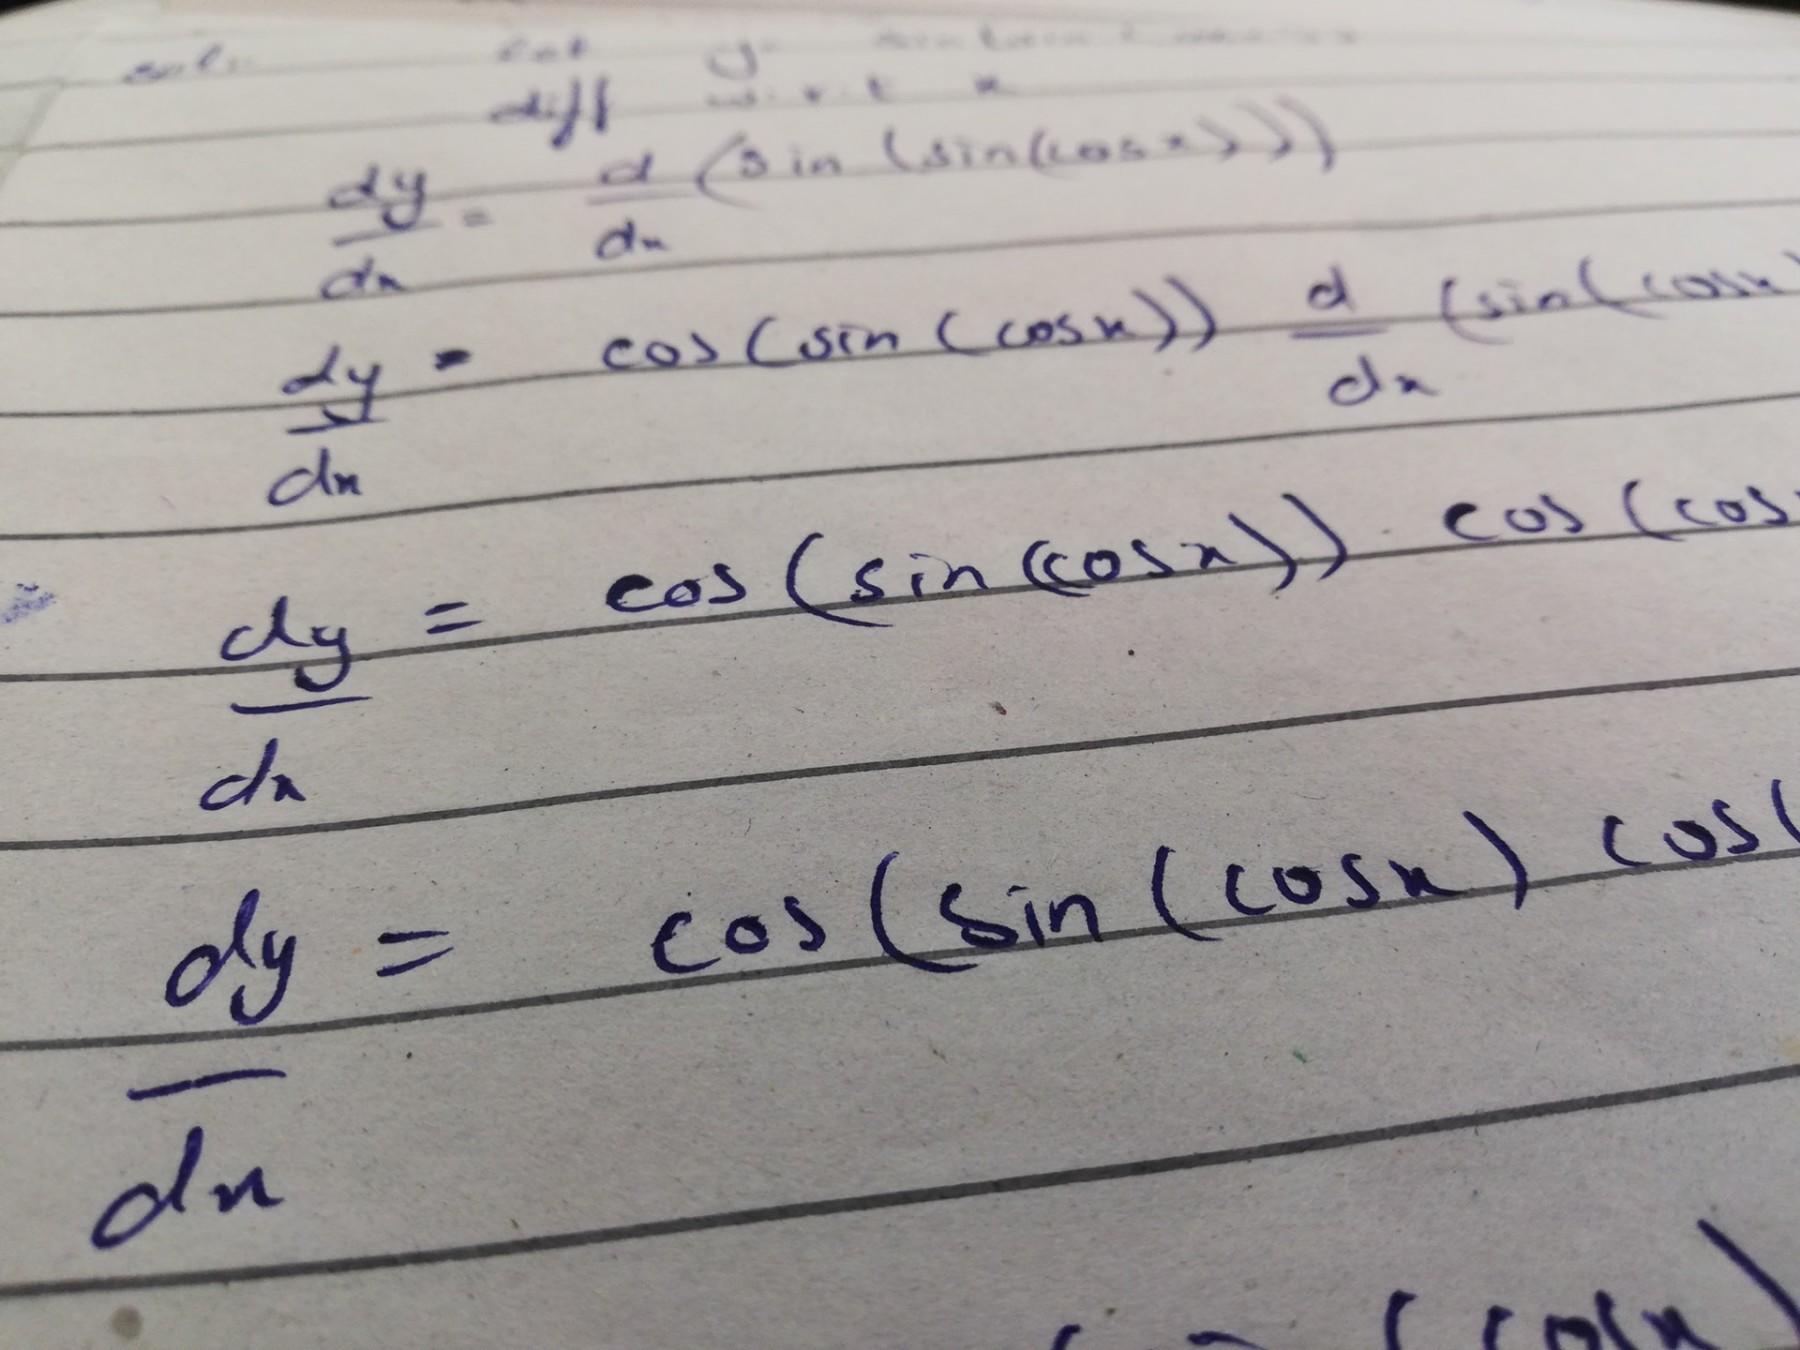 soln Let y
diff w.r.t x
dy/dx = d/dx (sin (sin(cosx)))
dy/dx = cos(sin(cosx)) d/dx (sin(cosx)
dy/dx = cos(sin(cosx)) . cos(cos
dy/dx = cos(sin(cosx) cos(
(cosx)